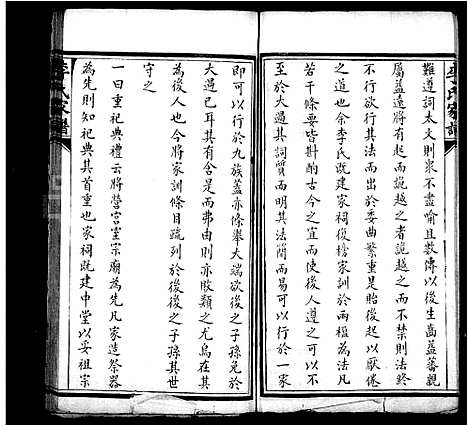 李氏家譜
難遵詞太文則衆不盡喻且數傳以後生齒益蕃親
屬益遠將有起而詭越之者詭越之而不禁則法終
不行欲行其法而出於委曲繁重是貽後起以厭倦
之道也余李氏既建家祠復榜家訓於兩楹為法凡
若干條要皆斟酌古今之宜而使後人遵之可以不
至於大過其詞質而明其法簡而易可以行於一家
即可以行於九族蓋亦條舉大端欲後之子孫無於
大過已耳其有合是而弗由則亦敗類之尤烏在其
為後人也今將家訓條目疏列於後後之子孫其世
守之
一曰重祀典禮云將營宮室宗廟為先凡家造祭器
為先則知祀典其首重也家祠既建中堂以妥祖宗
李氏家譜